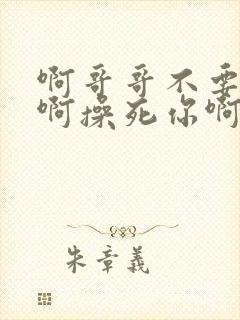 啊哥哥不要
啊操死你啊
朱章義